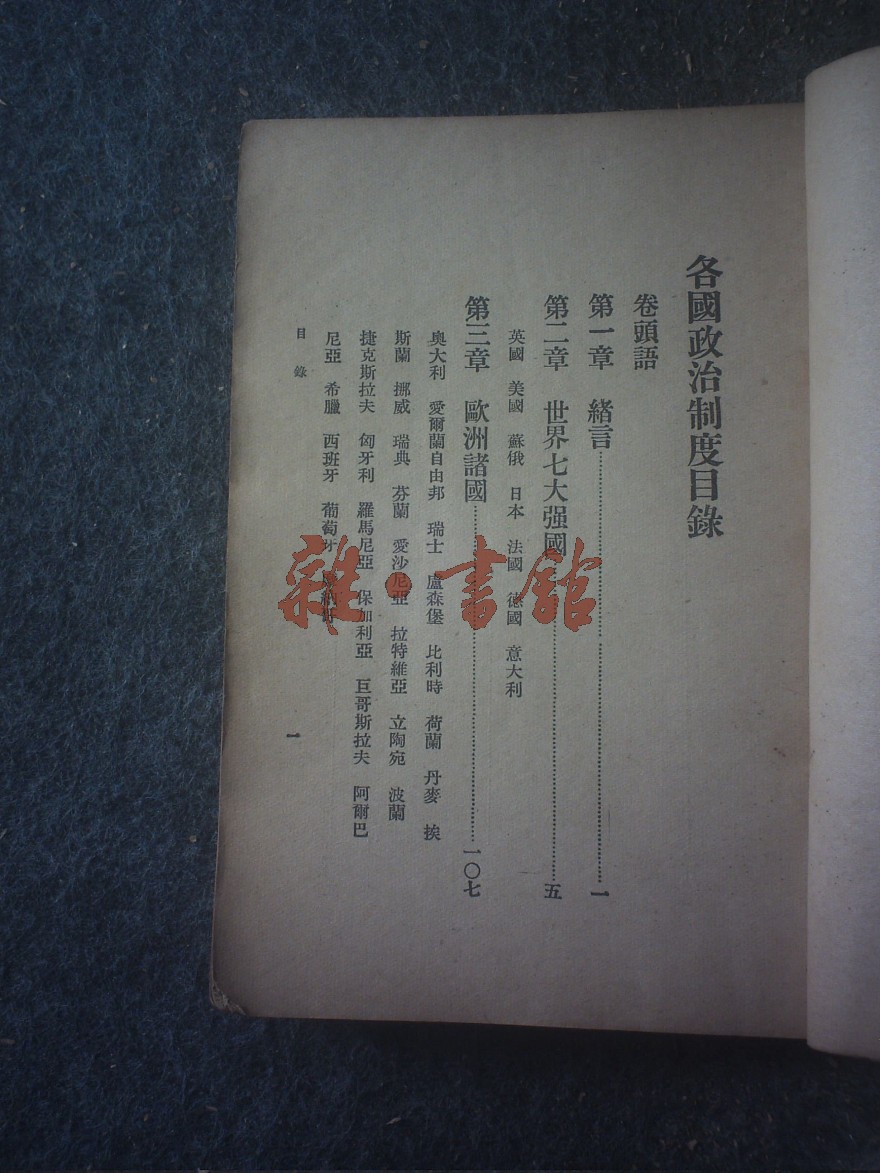 各國政治制度目錄
卷頭語
第一章 緒言⋯⋯⋯⋯⋯⋯⋯⋯⋯⋯一
第二章 世界七大强國⋯⋯⋯⋯⋯⋯⋯⋯五
英國 美國 蘇俄 日本 法國 德國 意大利
第三章 歐洲諸國⋯⋯⋯⋯⋯⋯⋯⋯一〇七
奥大利 愛爾蘭自由邦 瑞士 盧森堡 比利時 荷蘭 丹麥 挨
斯蘭 挪威 瑞典 芬蘭 愛沙尼亞 拉特維亞 立陶宛 波蘭
捷克斯拉夫 匈牙利 羅馬尼亞 保加利亞 巨哥斯拉夫 阿爾巴
尼亞 希臘 西班牙 葡萄牙
目錄
一
雜·書館